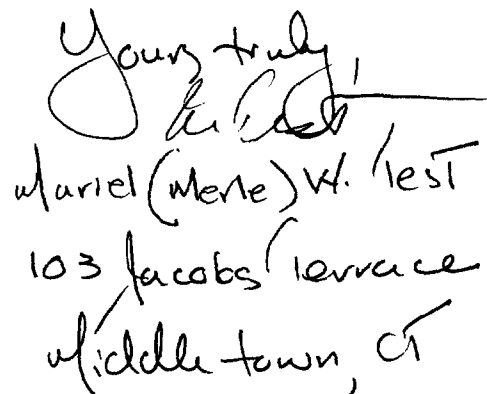 Yours truly,
Muriel (Merle) W. Test
103 Jacobs Terrace
Middletown, CT